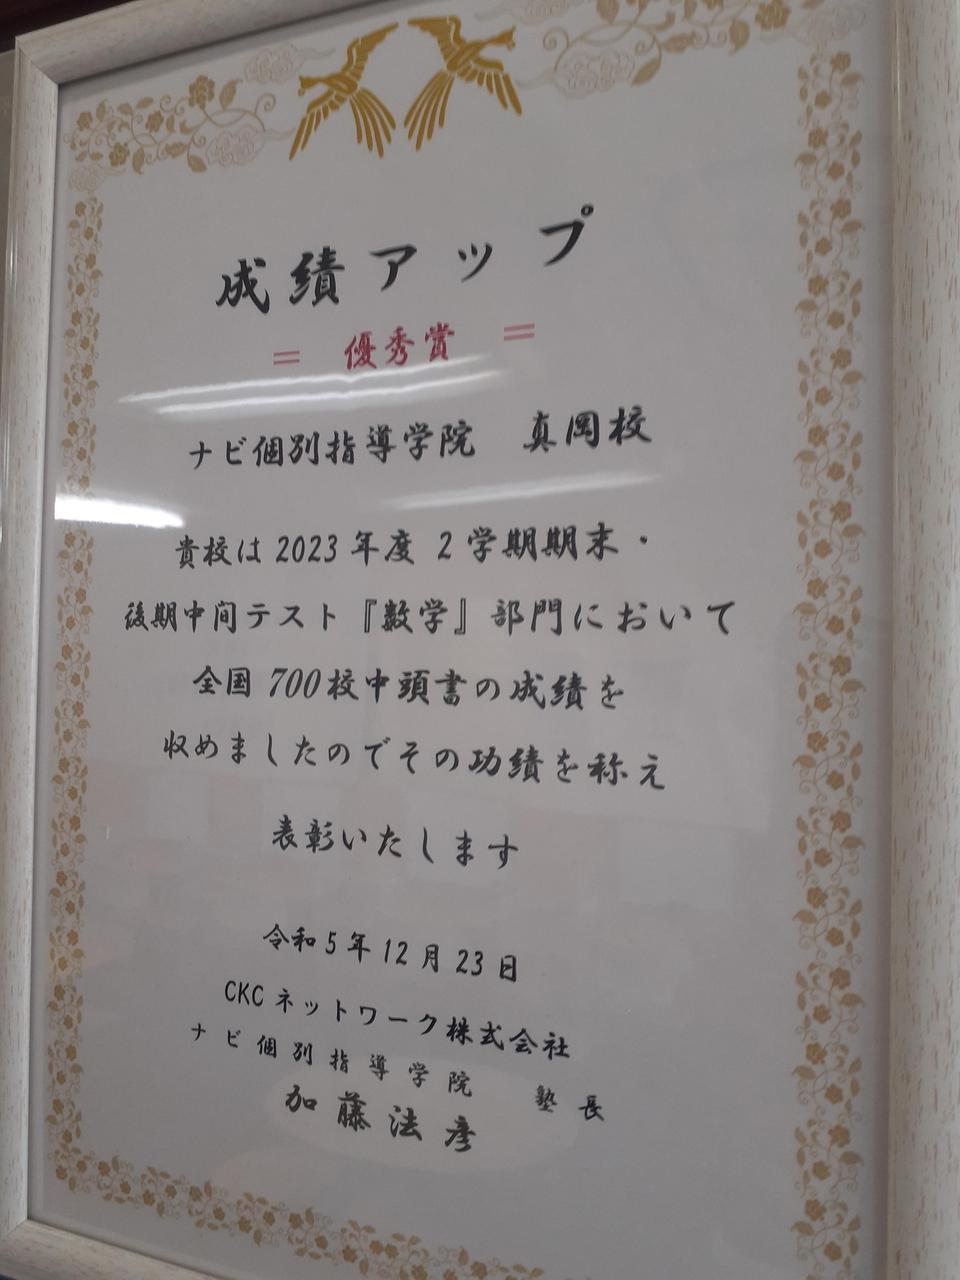 成績アップ
= 優秀賞 =
ナビ個別指導学院 真岡校
貴校は2023年度2学期期末・
後期中間テスト『数学』部門において
全国700校中頭書の成績を
収めましたのでその功績を称え
表彰いたします
令和5年12月23日
CKCネットワーク株式会社
ナビ個別指導学院 塾長
加藤法彦